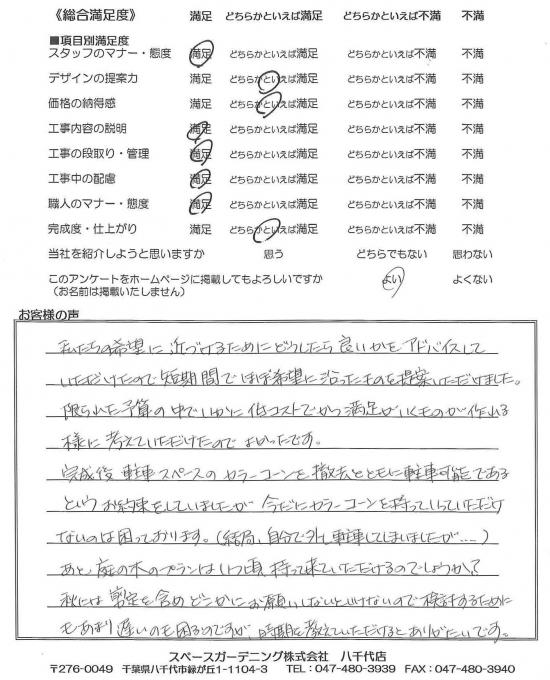 《総合満足度》 満足 どちらかといえば満足 どちらかといえば不満 不満
■項目別満足度
スタッフのマナー・態度 満足 どちらかといえば満足 どちらかといえば不満 不満
デザインの提案力 満足 どちらかといえば満足 どちらかといえば不満 不満
価格の納得感 満足 どちらかといえば満足 どちらかといえば不満 不満
工事内容の説明 満足 どちらかといえば満足 どちらかといえば不満 不満
工事の段取り・管理 満足 どちらかといえば満足 どちらかといえば不満 不満
工事中の配慮 満足 どちらかといえば満足 どちらかといえば不満 不満
職人のマナー・態度 満足 どちらかといえば満足 どちらかといえば不満 不満
完成度・仕上がり 満足 どちらかといえば満足 どちらかといえば不満 不満
当社を紹介しようと思いますか 思う どちらでもない 思わない
このアンケートをホームページに掲載してもよろしいですか よい よくない
(お名前は掲載いたしません)
お客様の声
私たちの希望に近づけるためにどうしたら良いかをアドバイスして
いただけたので短期間でほぼ希望に沿ったものを提案いただけました。
限られた予算の中でいかに低コストでかつ満足がいくものが作れる
様に考えていただけたのでよかったです。
完成後 駐車スペースのカラーコーンを撤去とともに駐車可能である
というお約束をしていましたが 今だにカラーコーンを持っていっていただけ
ないのは困っております。(結局、自分で外し駐車してしまいましたが……)
あと、庭の木のプランはいつ頃 持って来ていただけるのでしょうか?
秋には 剪定を含めどこかにお願いしないといけないので検討するために
もあまり遅いのも困るのですが、時期を教えていただけるとありがたいです。
スペースガーデニング株式会社 八千代店
〒276-0049 千葉県八千代市緑が丘1-1104-3 TEL:047-480-3939 FAX:047-480-3940